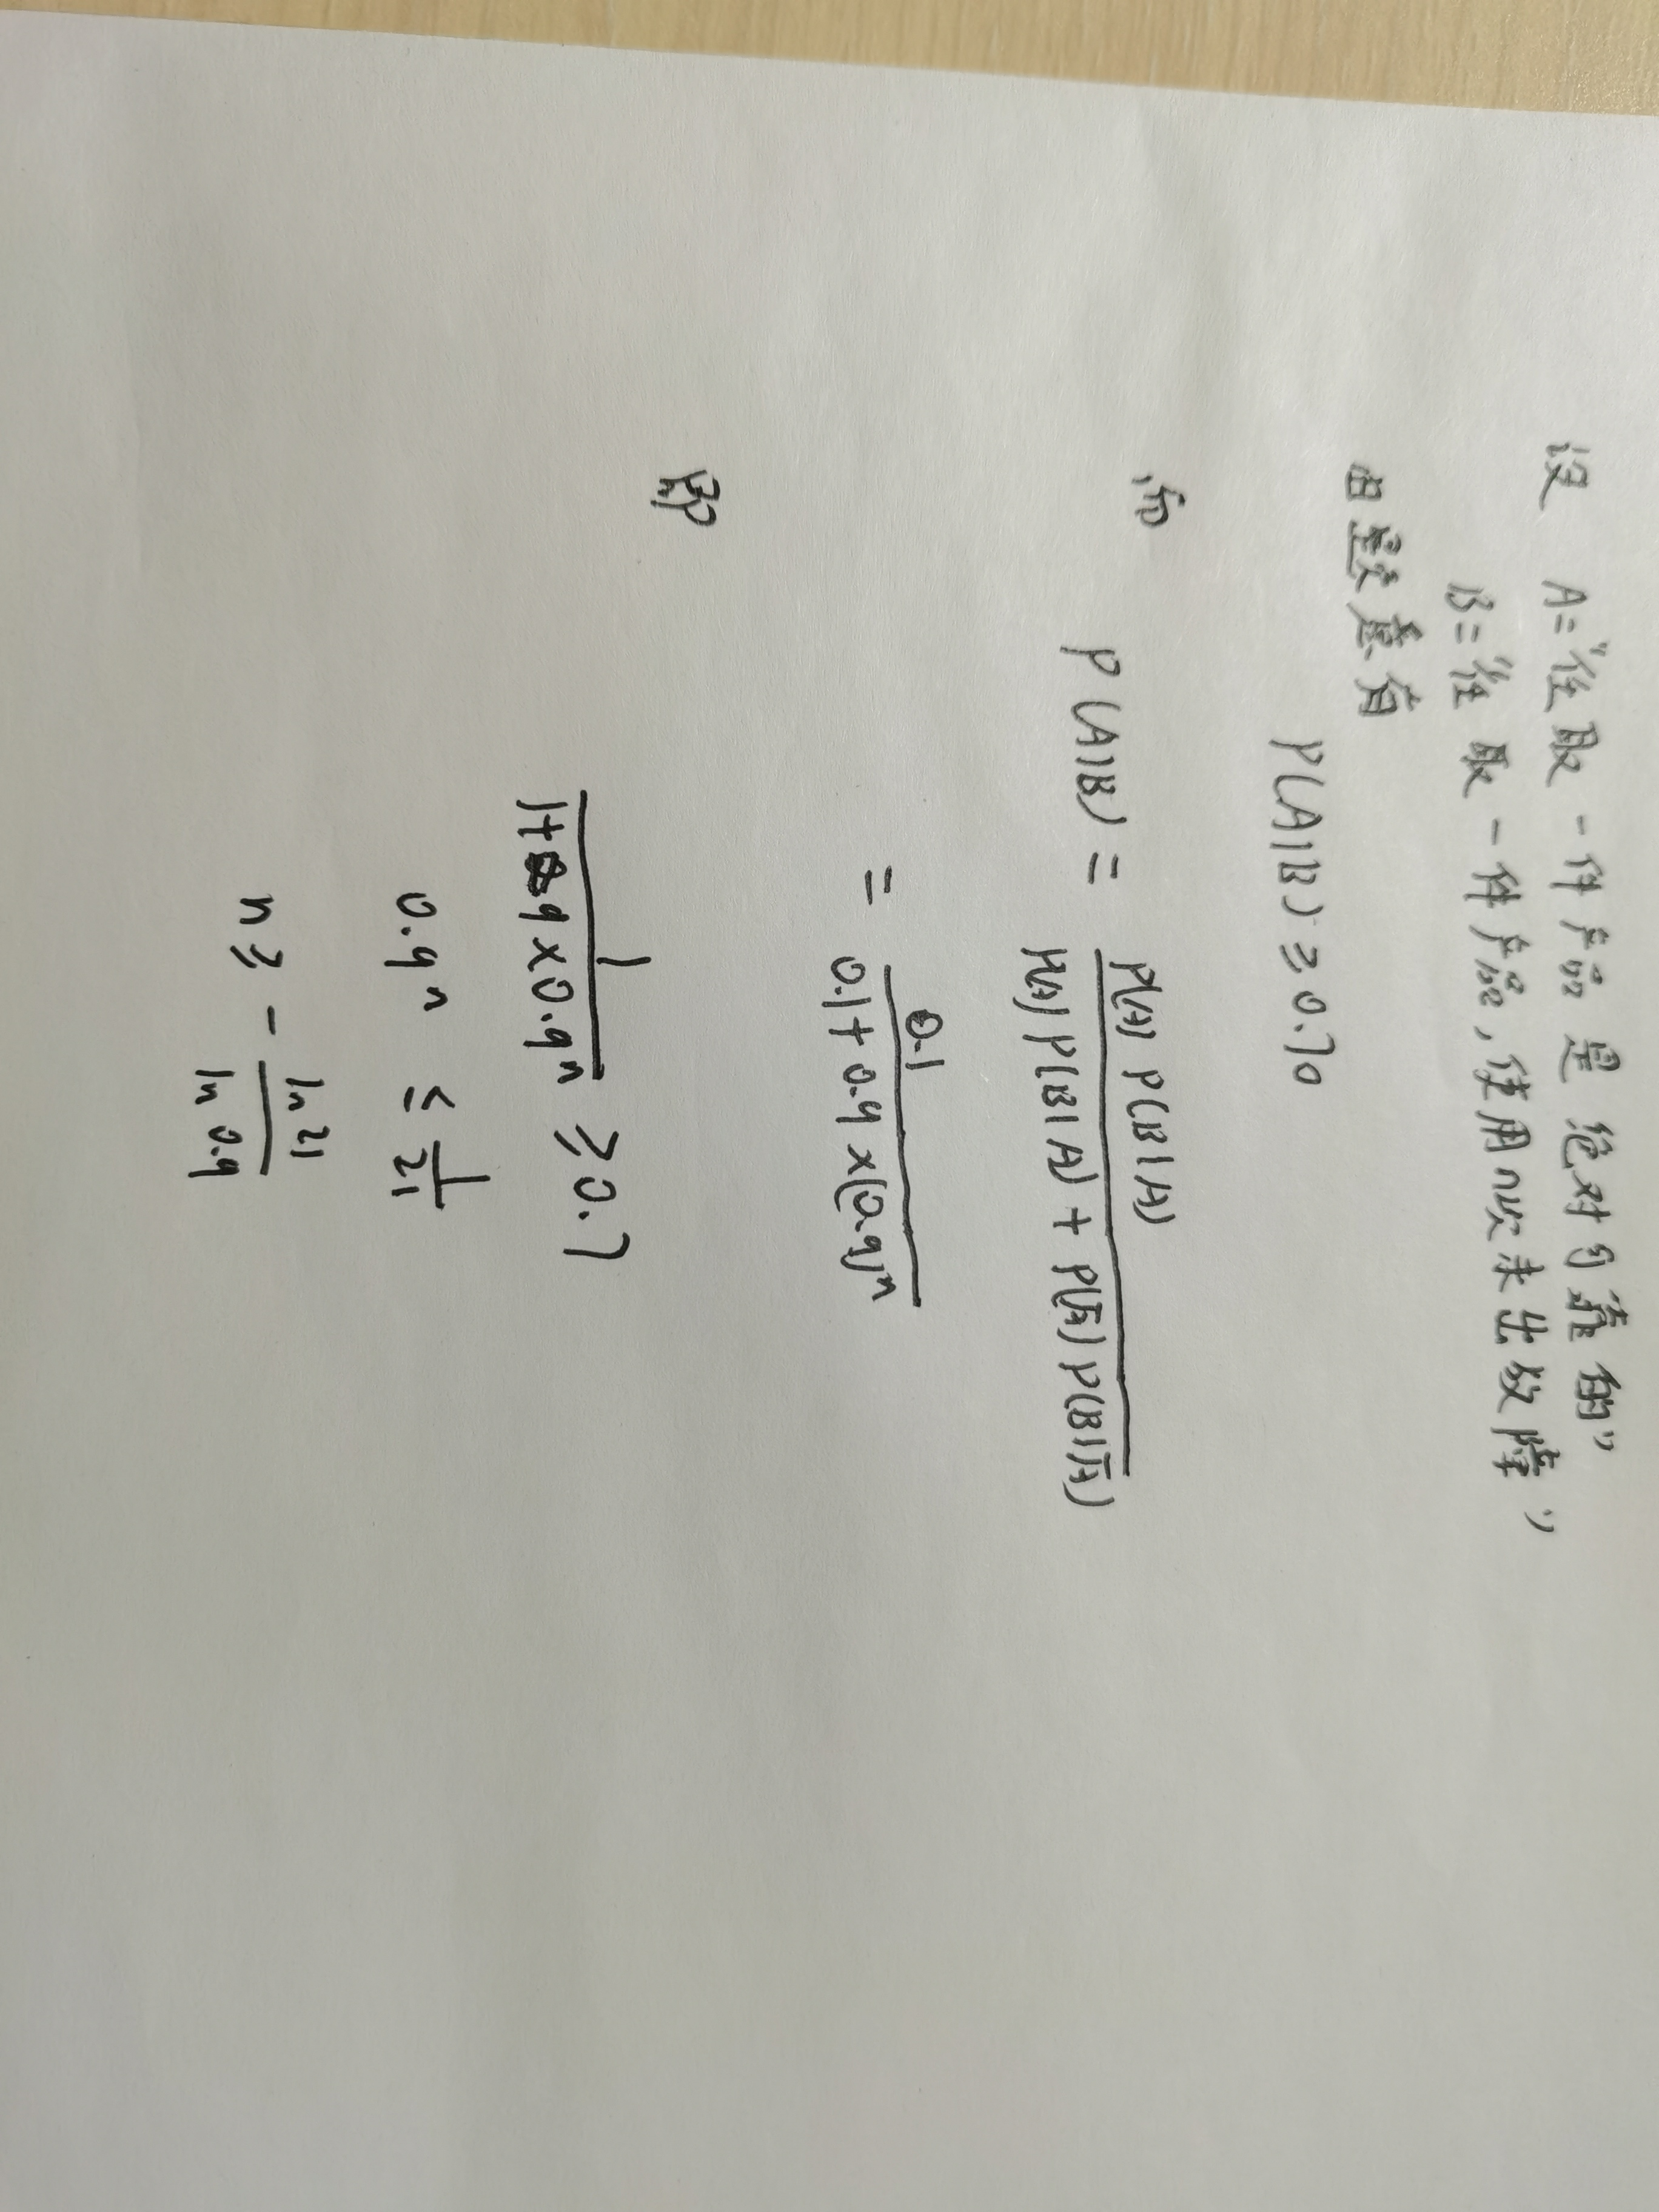 设 A="任取一件产品是绝对可靠的"
B="任取一件产品,使用n次未出故障"
由题意有
P(A|B) ≥ 0.70
而 P(A|B) = \frac{P(A)P(B|A)}{P(A)P(B|A)+P(\bar{A})P(B|\bar{A})}
= \frac{0.1}{0.1+0.9×(0.9)^n}
即
\frac{1}{1+9×0.9^n} ≥ 0.7
0.9^n ≤ \frac{1}{21}
n ≥ -\frac{ln 21}{ln 0.9}